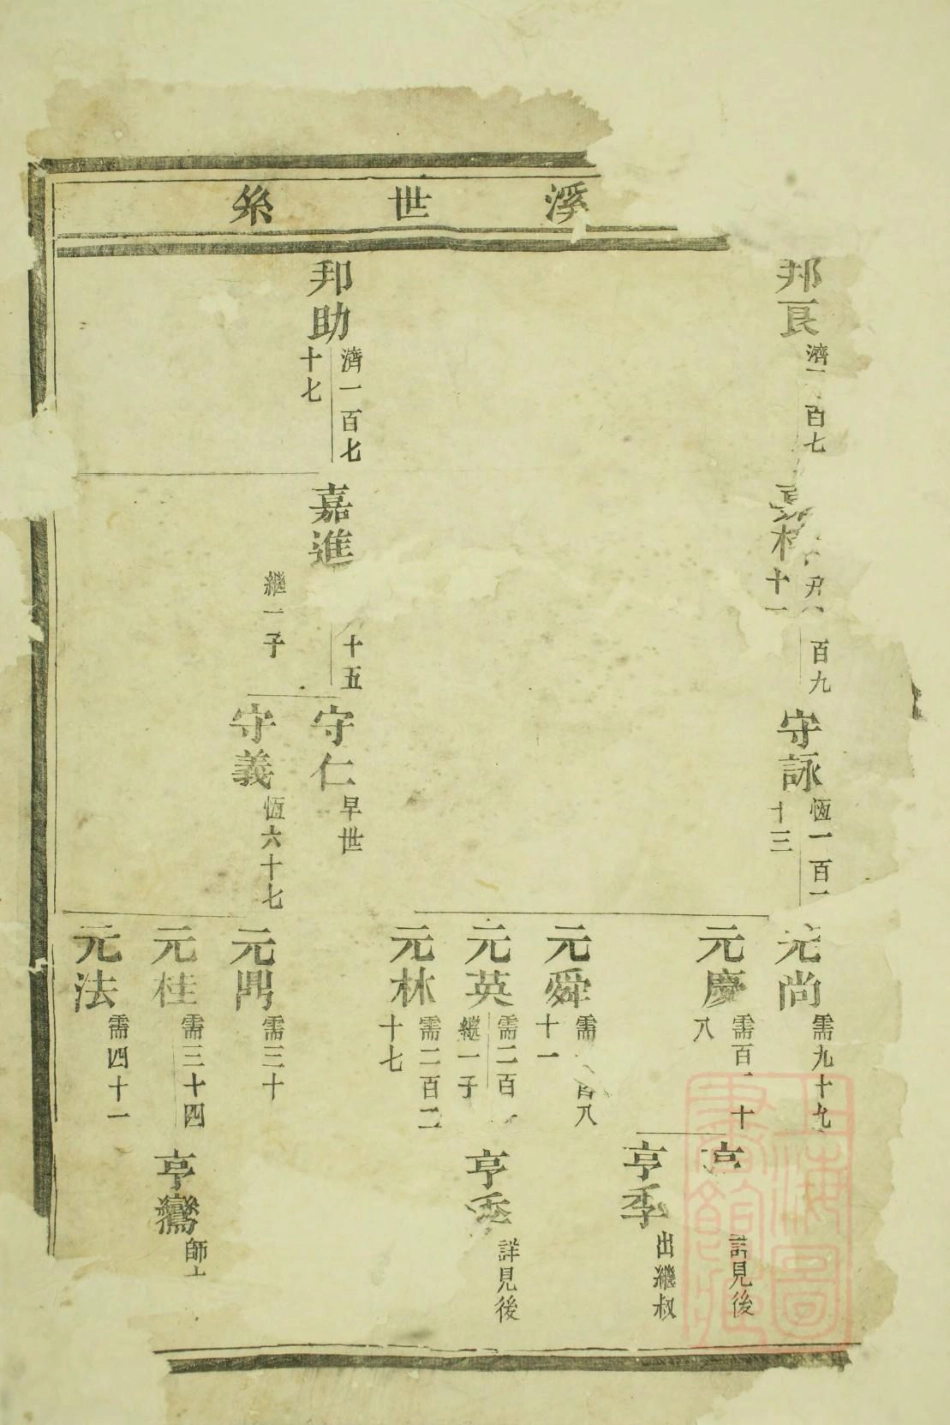 溪世系
邦良
濟一百七
守詠
恆一百一
十三
元尚
需九十九
元慶
需百一十
八
亨
詳見後
亨季
出繼叔
元舜
需百八
十一
元英
需二百
繼一子
亨
詳見後
元林
需二百二
十七
邦助
濟一百七
十七
嘉進
十五
繼一子
守仁
早世
守義
恆六十七
元
需三十
元桂
需三十四
亨鸞
師
元法
需四十一